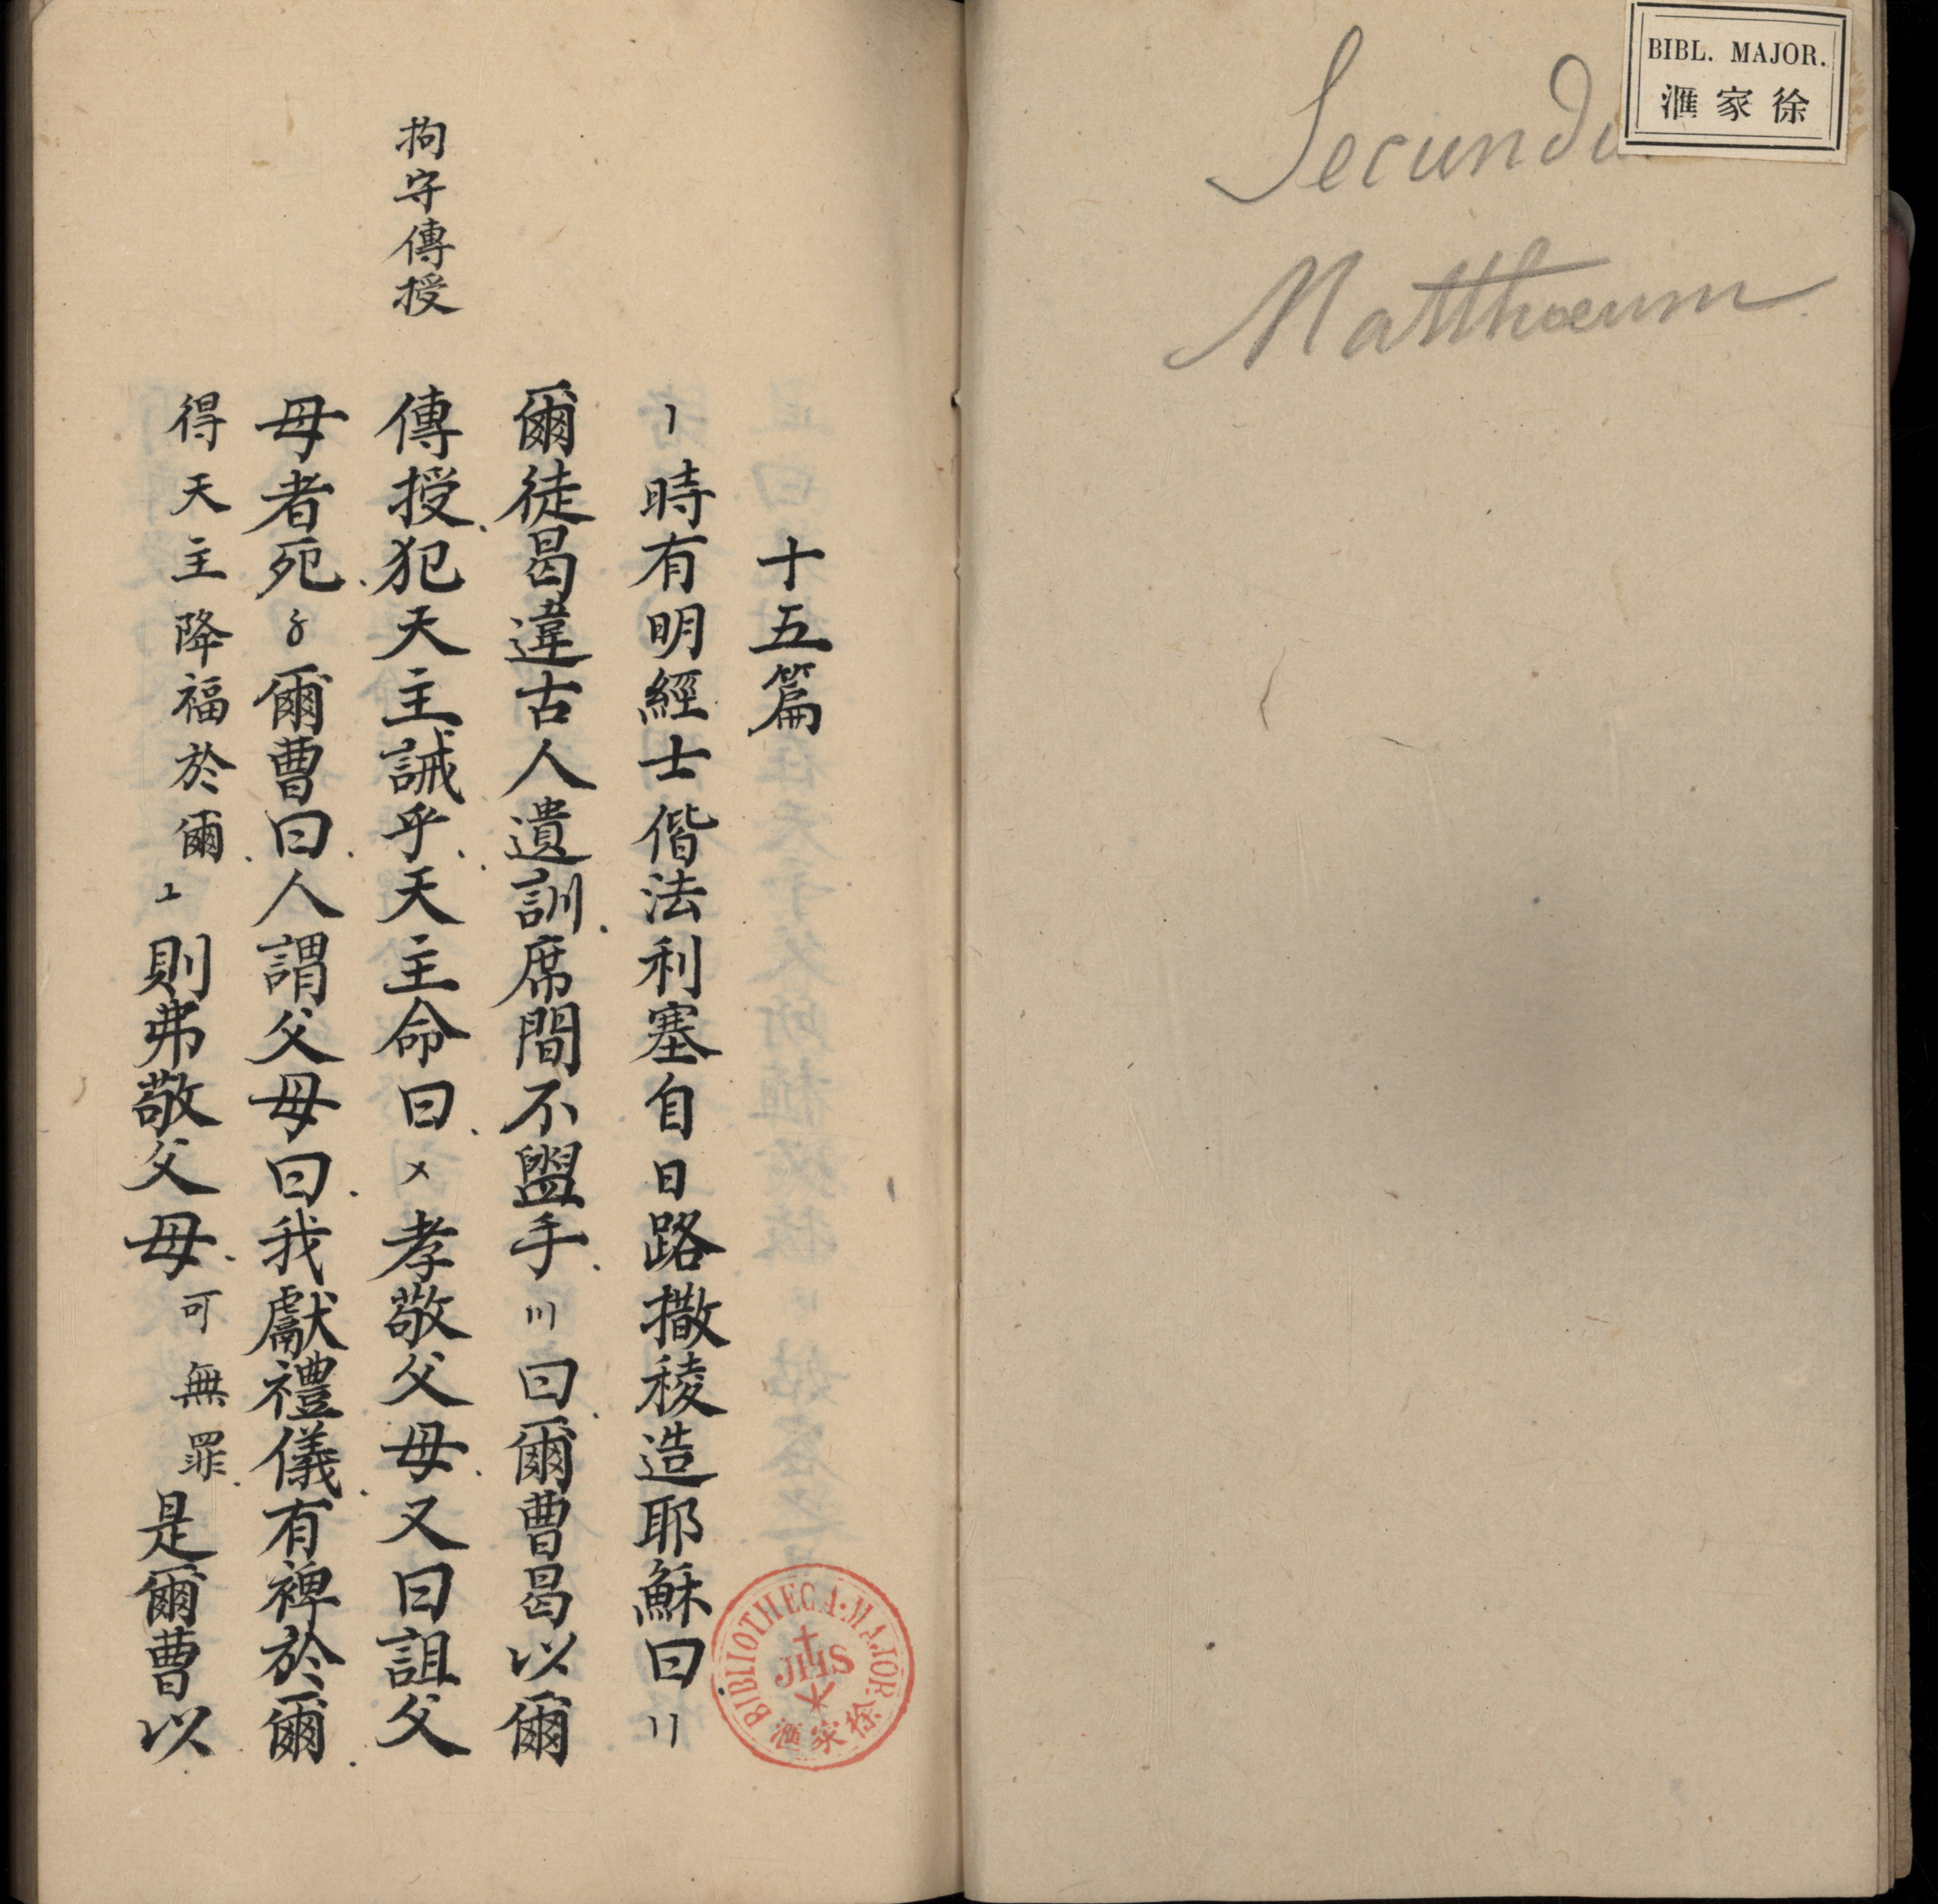 BIBL. MAJOR.
滙家徐
Secundu
Matthæum
十五篇
〡時有明經士偕法利塞自日路撒稜造耶穌曰〢
爾徒曷違古人遺訓席間不盥手〣曰爾曹曷以爾
拘守傳授
傳授犯天主誡乎天主命曰〤孝敬父母又曰詛父
母者死〥爾曹曰人謂父母曰我獻禮儀有裨於爾
得天主降福於爾〦則弗敬父母可無罪是爾曹以
BIBLIOTHECA·MAJOR
JHS
滙家徐